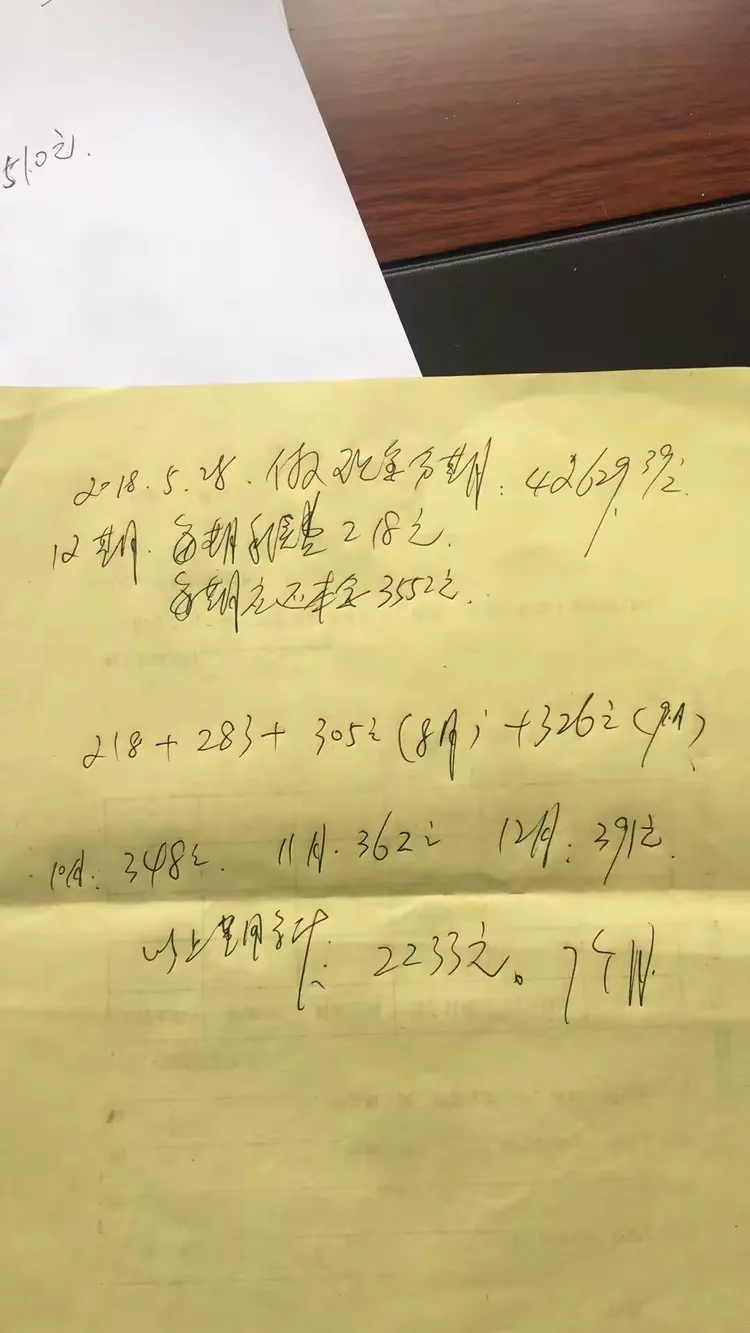 510元.
2018.5.28.做现金分期:42629.39元.
12期.每期手续费218元.
每期应还本金3552元.
218+283+305元(8月)+326元(9月)
10月:348元. 11月.362元 12月:391元.
以上期合计:2233元。7个月.